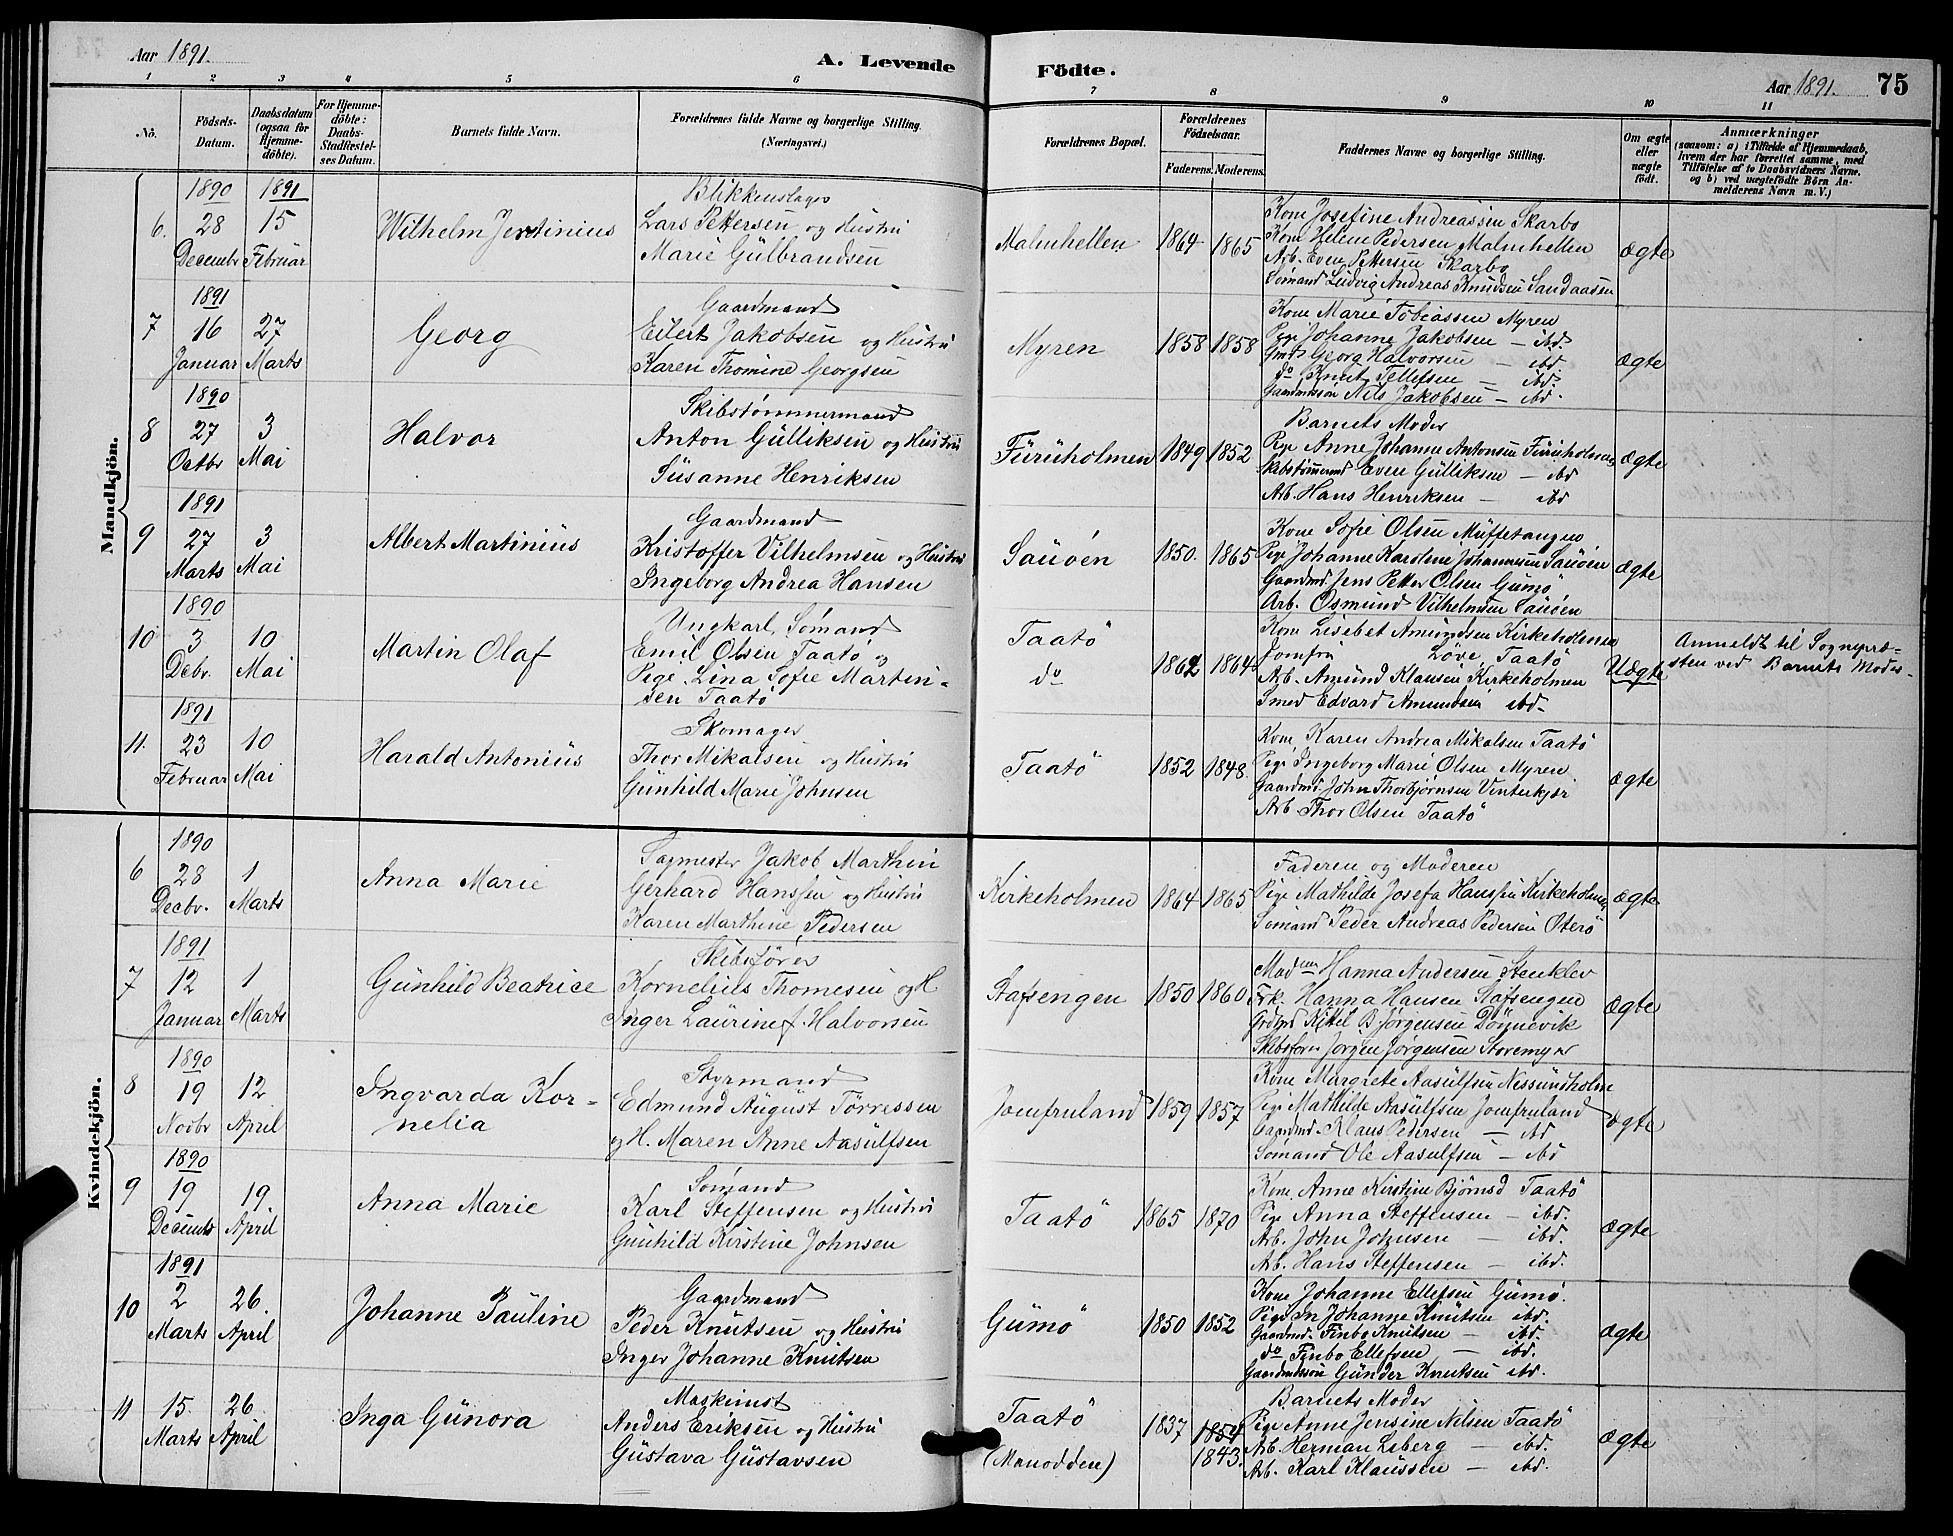 Aar 1891.
A. Levende Födte.
Aar 1891. 75
1 2 3 4 5 6 7 8 9 10 11
No.
Födsels-Datum.
Daabsdatum (ogsaa for Hjemme-döbte).
For Hjemme-döbte: Daabs-Stadfæstel-ses Datum.
Barnets fulde Navn.
Forældrenes fulde Navne og borgerlige Stilling. (Næringsvei.)
Forældrenes Bopæl.
Forældrenes Födselsaar.
Faderens. Moderens.
Faddernes Navne og borgerlige Stilling.
Om ægte eller uægte födt.
Anmærkninger
(saasom: a) i Tilfælde af Hjemmedaab, hvem der har forrettet samme, med Tilföielse af to Daabsvidners Navne, og b) ved uægtefödte Börn An-melderens Navn m. V.)
Mandkjön.
6.
1890 28 Decembr
1891 15 Februar
Wilhelm Jentinius
Blikkenslager
Lars Pettersen og Hustru
Marie Gulbrandsen
Malmhellen
1864 1865
Kone Josefine Andreassen Skarbo
Kone Helene Pedersen Malmhellen
Arb. Even Pettersen Skarbo
Sømand Ludvig Andreas Knudsen Sandaasen
ægte
7
1891 16 Januar
27 Marts
Georg
Gaardmand
Eilert Jakobsen og Hustru
Karen Thomine Georgsen
Myren
1858 1858
Kone Marie Tobiassen Myren
Pige Johanne Jakobsen — ibd.
Gmd Georg Halvorsen — ibd.
do Knut Tellefsen — ibd.
Gaardmdssøn Nils Jakobsen — ibd.
ægte
8
1890 27 Octbr
3 Mai
Halvor
Skibstömmermand
Anton Gulliksen og Hustru
Susanne Henriksen
Furuholmen
1849 1852
Barnets Moder
Pige Anne Johanne Antonsen Furuholmen
Skibstömmermd Even Gulliksen — ibd
Arb. Hans Henriksen — ibd
ægte
9
1891 27 Marts
3 Mai
Albert Martinius
Gaardmand
Kristoffer Vilhelmsen og Hustru
Ingeborg Andrea Hansen
Sauöen
1850. 1865
Kone Sofie Olsen Muffetangen
Pige Johanne Karoline Johannesen Sauöen
Gaardmd Jens Petter Olsen Gumö
Arb. Osmund Vilhelmsen Sauöen
ægte
10
1890 3 Decbr.
10 Mai
Martin Olaf
Ungkarl, Sömand
Emil Olsen Taatö og
Pige Lina Sofie Martin-
sen Taatö
Taatö
do
1862 1864
Kone Lisebet Amundsen Kirkeholmen
Jomfru Löve, Taatö
Arb. Amund Klausen Kirkeholmen
Smed Edvard Amundsen ibd.
Uægte
Anmeldt til Sognepræ-
sten ved Barnets Moder.
11.
1891 23 Februar
10 Mai
Harald Antonius
Skomager
Thor Mikalsen og Hustru
Gunhild Marie Johnsen
Taatö
1852 1848.
Kone Karen Andrea Mikalsen Taatö
Pige Ingeborg Marie Olsen Myren
Gaardmd. John Thorbjörnsen Vinterkjær
Arb Thor Olsen Taatö
ægte
Kvindekjön.
6
1890 28 Decbr.
1 Marts
Anna Marie
Sagmester Jakob Marthin
Gerhard Hanssen og Hustru
Karen Marthine Pedersen
Kirkeholmen
1864 1865
Faderen og Moderen
Pige Mathilde Josefa Hanssen Kirkeholmen
Sömand Peder Andreas Pedersen Oterö
ægte
7
1891 12 Januar
1 Marts
Gunhild Beatrice
Skibsförer
Kornelius Thomesen og H.
Inger Laurine f. Halvorsen
Stafsengen
1850 1860
Madme Hanna Andersen Stenklev
Frk. Hanna Hansen Stafsengen
Grdmd Kittel B. Jörgensen Dögnevik
Skibsförer Jörgen Jörgensen Storemyr
Ægte
8
1890 19 Novbr
12 April
Ingvarda Kor-
nelia
Styrmand
Edmund August Törressen
og H. Maren Anne Aasulfsen
Jomfruland
1859 1857
Kone Margrete Aasulfsen Nissundholm
Pige Mathilde Aasulfsen Jomfruland
Gaardmd. Klaus Pedersen — ibd
Sömand Ole Aasulfsen — ibd
Ægte
9
1890 19 Decembr
19 April
Anna Marie
Sömand
Karl Steffensen og Hustru
Gunhild Kirstine Johnsen
Taatö
1865 1870
Kone Anne Kirstine Bjørnsd Taatö
Pige Anna Steffensen — ibd.
Arb. John Johnsen — ibd.
Arb. Hans Steffensen — ibd.
Ægte
10
1891 2 Marts
26. April
Johanne Pauline
Gaardmand
Peder Knutsen og Hustru
Inger Johanne Knutsen
Gumö
1850 1852
Kone Johanne Ellefsen Gumö.
Pige In. Johanne Knutsen ibd.
Gaardmd. Finbo Knutsen — ibd.
do Finbo Ellefsen — ibd.
Gaardmdssön Gunder Knutsen ibd.
Ægte
11
15. Marts
26. April
Inga Gunora
Maskinist
Anders Eriksen og Hustru
Gustava Gustavsen
Taatö
(Monodden)
1837 1854 1843.
Barnets Moder
Pige Anne Jensine Nilsen Taatö
Arb. Herman Isberg — ibd.
Arb. Karl Klaussen — ibd.
Ægte